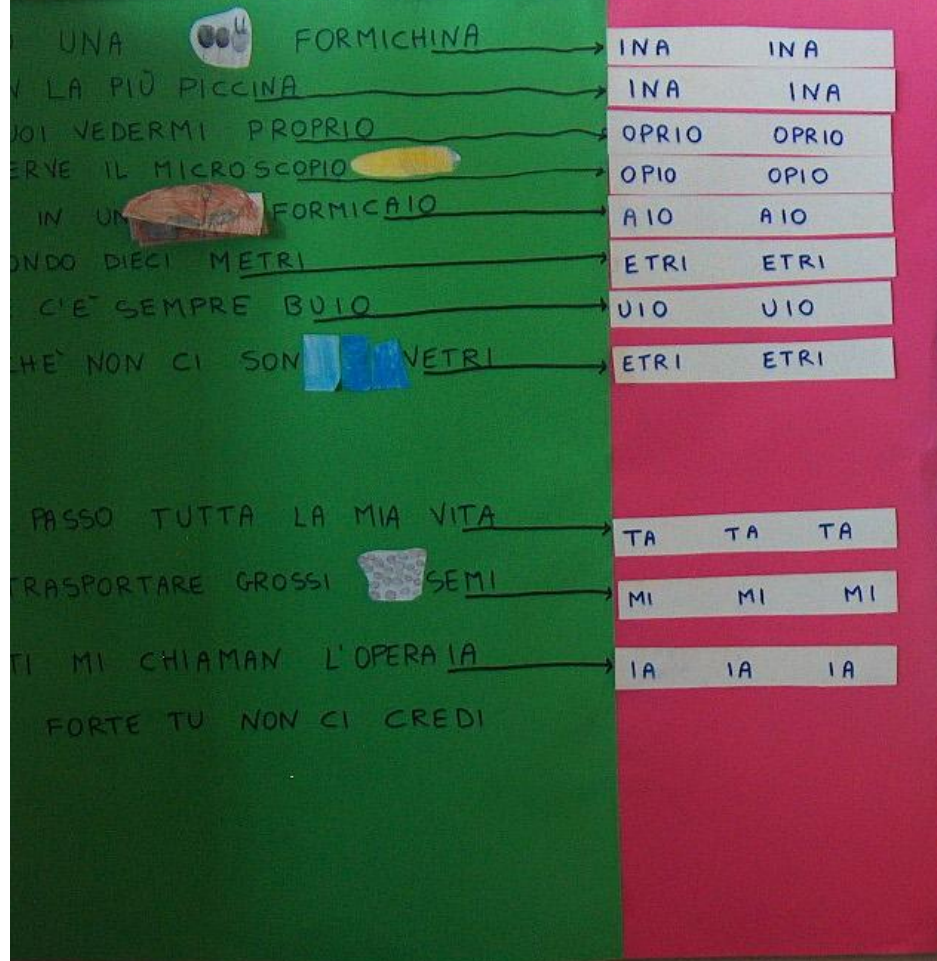 UNA FORMICHINA INA INA
LA PIÙ PICCINA INA INA
VEDERMI PROPRIO OPRIO OPRIO
IL MICROSCOPIO OPIO OPIO
IN UN FORMICAIO AIO AIO
DIECI METRI ETRI ETRI
C'È SEMPRE BUIO UIO UIO
NON CI SON VETRI ETRI ETRI
PASSO TUTTA LA MIA VITA TA TA TA
TRASPORTARE GROSSI SEMI MI MI MI
MI CHIAMAN L'OPERAIA IA IA IA
FORTE TU NON CI CREDI